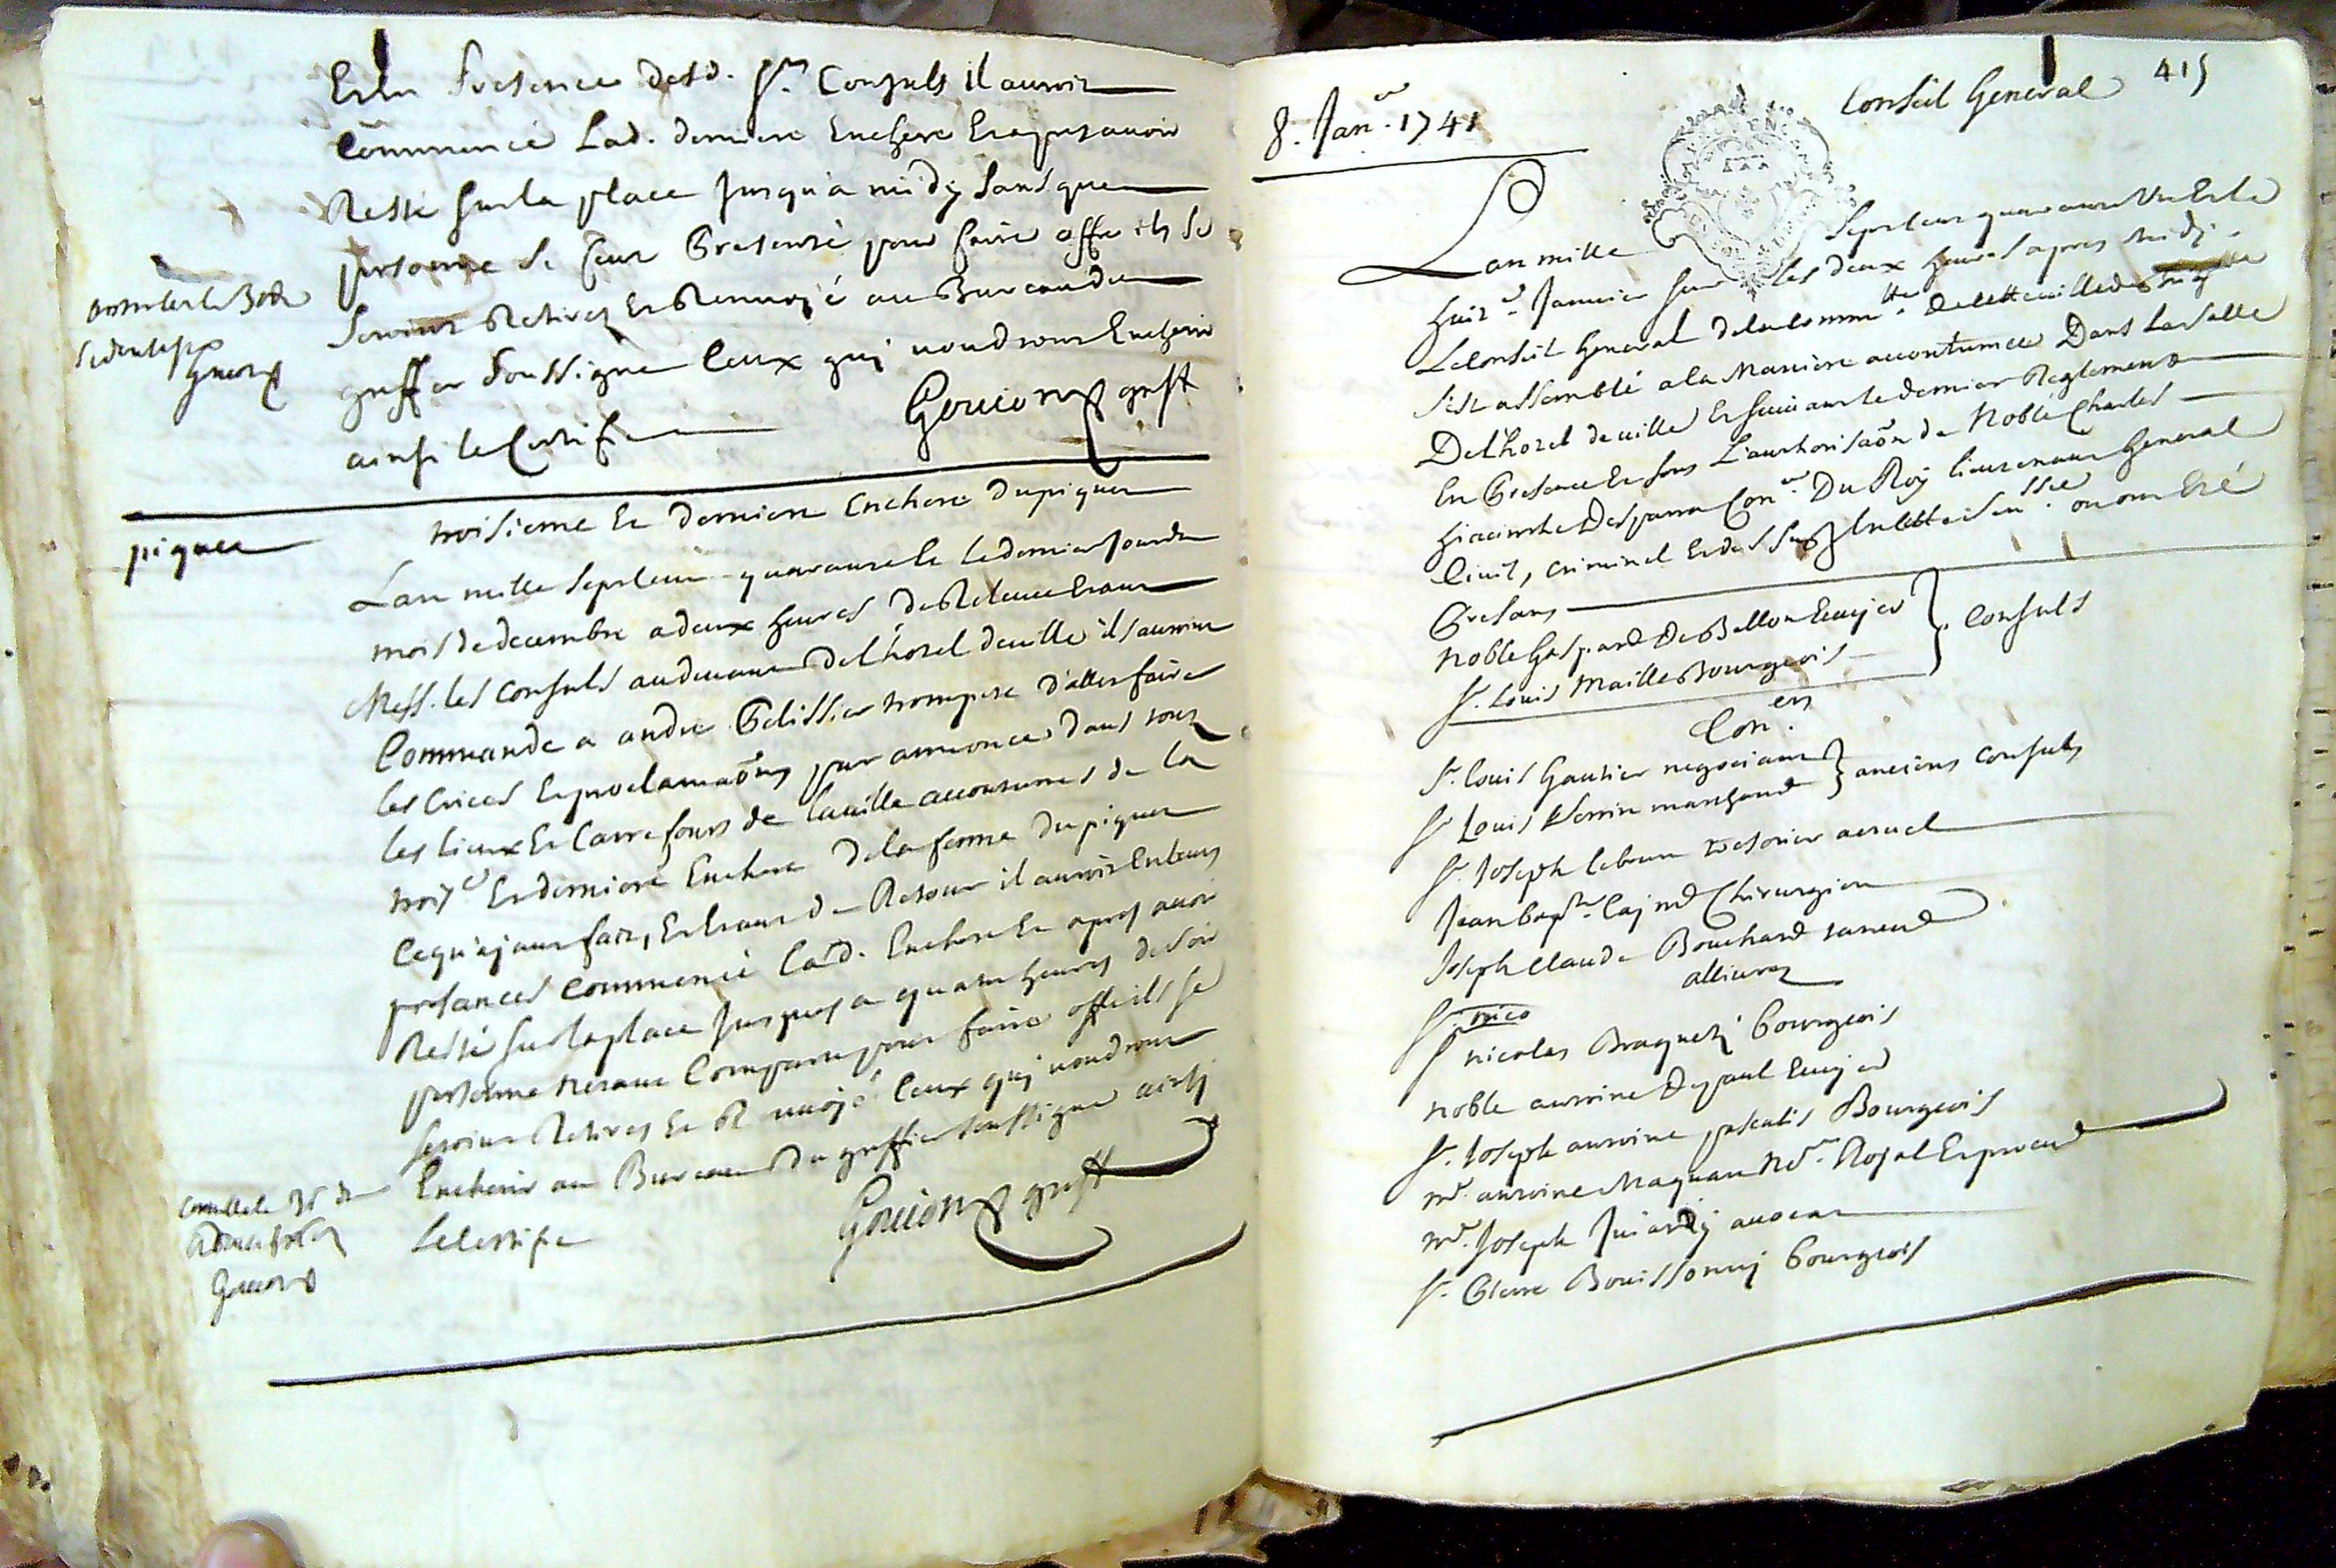 Et en presence desd. Srs Consuls il auroit
Commencé Lad. derniere Enchere Et apres avoir
Resté sur la place jusqu'a midy sans que
personne se feut Presenté pour faire offre ils se
seroint Retirez Et Renvoyé au Bureau du
greffier soussigné Ceux quj voudront Encherir
ainsi le Certifie
Gouion greff
troisieme Et derniere Enchere du piquet
piquet
L'an mille sept cent quarante Et le dernier jour du
mois de decembre a deux heures de Relevée Etant
Mess. les Consuls au devant de l'hotel de ville ils auroint
Commandé a andré Pelissier trompete d'aller faire
les criées Et proclamaõns par annonce dans tous
les lieux Et Carrefours de la ville accoutumés de la
troise Et derniere Enchere de la ferme du piquet
Ce qu'ayant fait, Et Etant de Retour il auroit En leurs
presances Commencé Lad. Enchere Et apres avoir
Resté sur la place jusques a quatre heures de soir
personne n'etant Comparu pour faire offre ils se
seroint Retirez Et Renvoyé Ceux quj voudront
Encherir au Bureau du greffier soussigné ainsy
Le Certifie
Gouion greff
Gouion
415
Conseil General
8. Janer. 1741
L'an mille Sept cent quarante Un Et le
huite Janvier sur les deux heures apres midj
Le Conseil General de la Commtté de cette ville de
s'est assemblé a la Maniere accoutumée Dans La Salle
De L'hotel de ville Et suivant le dernier Reglement
En Presence Et sous L'authorisaõn de Noble Charles
hiacinthe Desparra Coner Du Roy lieutenant General
Civil, criminel Et de En cette Senssée. ou ont Eté
Presans
noble Gaspard De Bellon Ecuyer
Sr. Louis Maille Bourgeois
Consuls
Coners
Sr. Louis Gautier negociant
Sr Louis Perrin marchand
anciens Consuls
Sr. Joseph Lebrun tresorier actuel
Jean Bapte. Cajmd Chirurgien
Joseph Claude Bouchard taneur
allivrez
Sr. nico
Sr nicolas Braquetj bourgeois
noble antoine De paul Ecuyer
Sr. Joseph antoine pascalis Bourgeois
me. antoine Magnan Nre. Royal Et procur
me. Joseph Juiardj avocat
Sr. Pierre Bouissonnj bourgeois